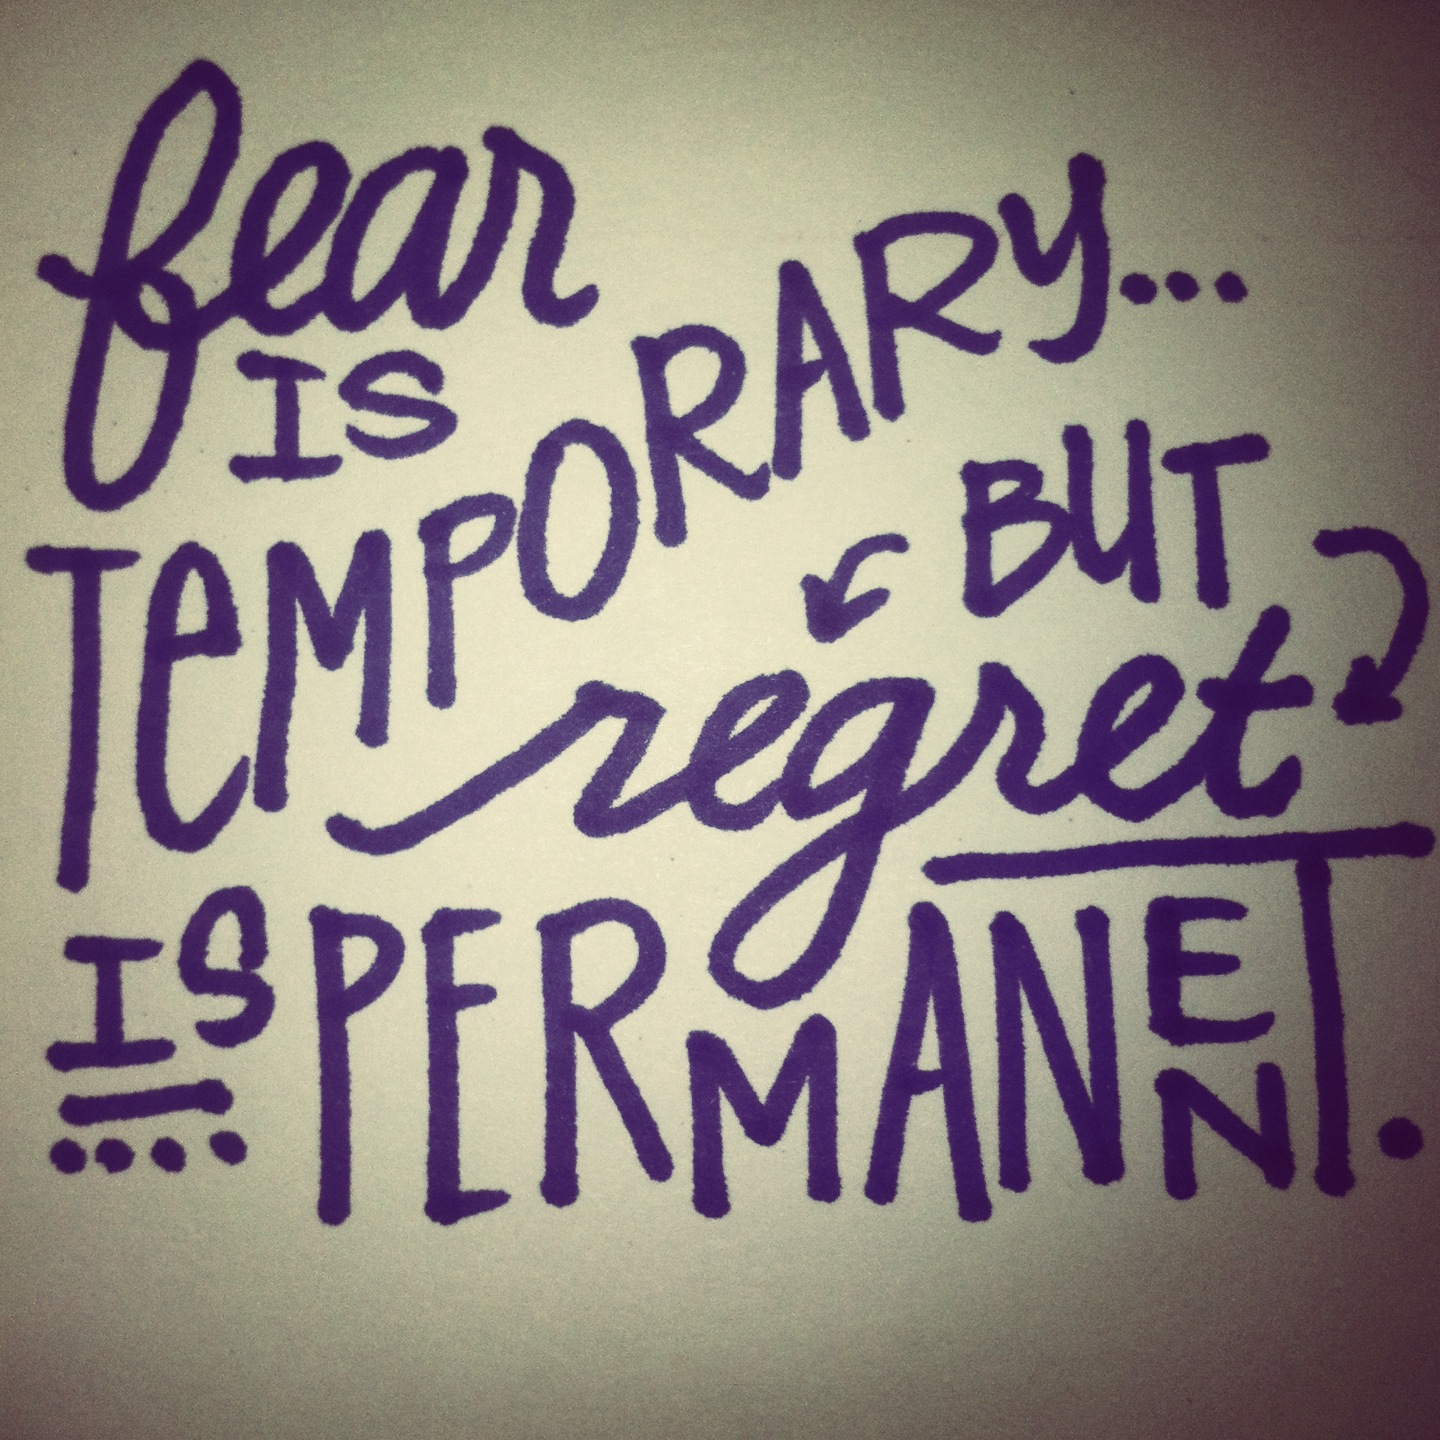 fear
IS
TeMPORARY...
BUT
regret
IS PERMANENT.